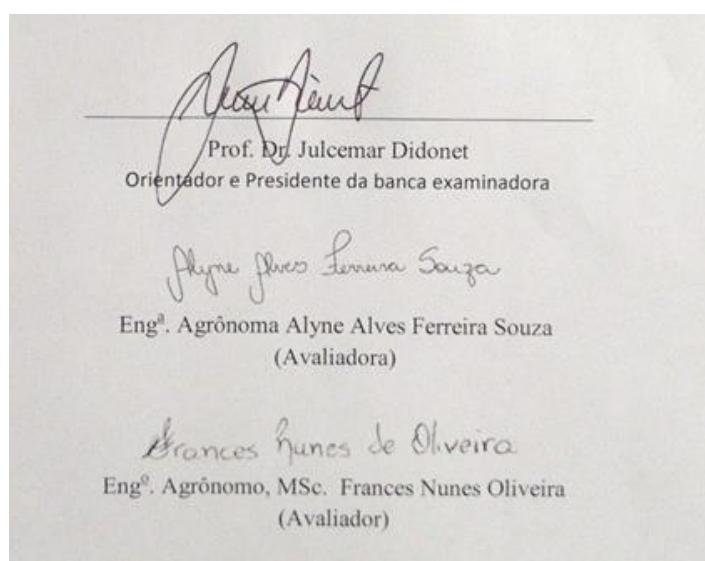 Prof. Dr. Julcemar Didonet
Orientador e Presidente da banca examinadora
Alyne Alves Ferreira Souza
Engª. Agrônoma Alyne Alves Ferreira Souza
(Avaliadora)
Frances Nunes de Oliveira
Engº. Agrônomo, MSc. Frances Nunes Oliveira
(Avaliador)